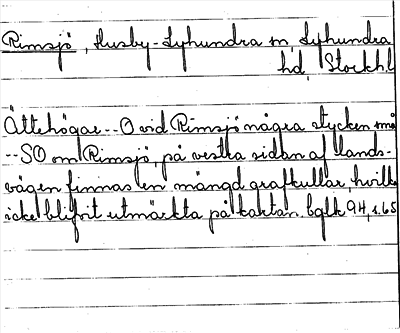 Rimsjö, Husby-Lyhundra sn, Lyhundra
hd, Stockhl
Ättehögar -- O vid Rimsjö några stycken små
-- SO om Rimsjö, på vestra sidan af lands-
vägen finnas en mängd grafkullar, hvilka
icke blifvit utmärkta på kartan. bglk 94, s. 65